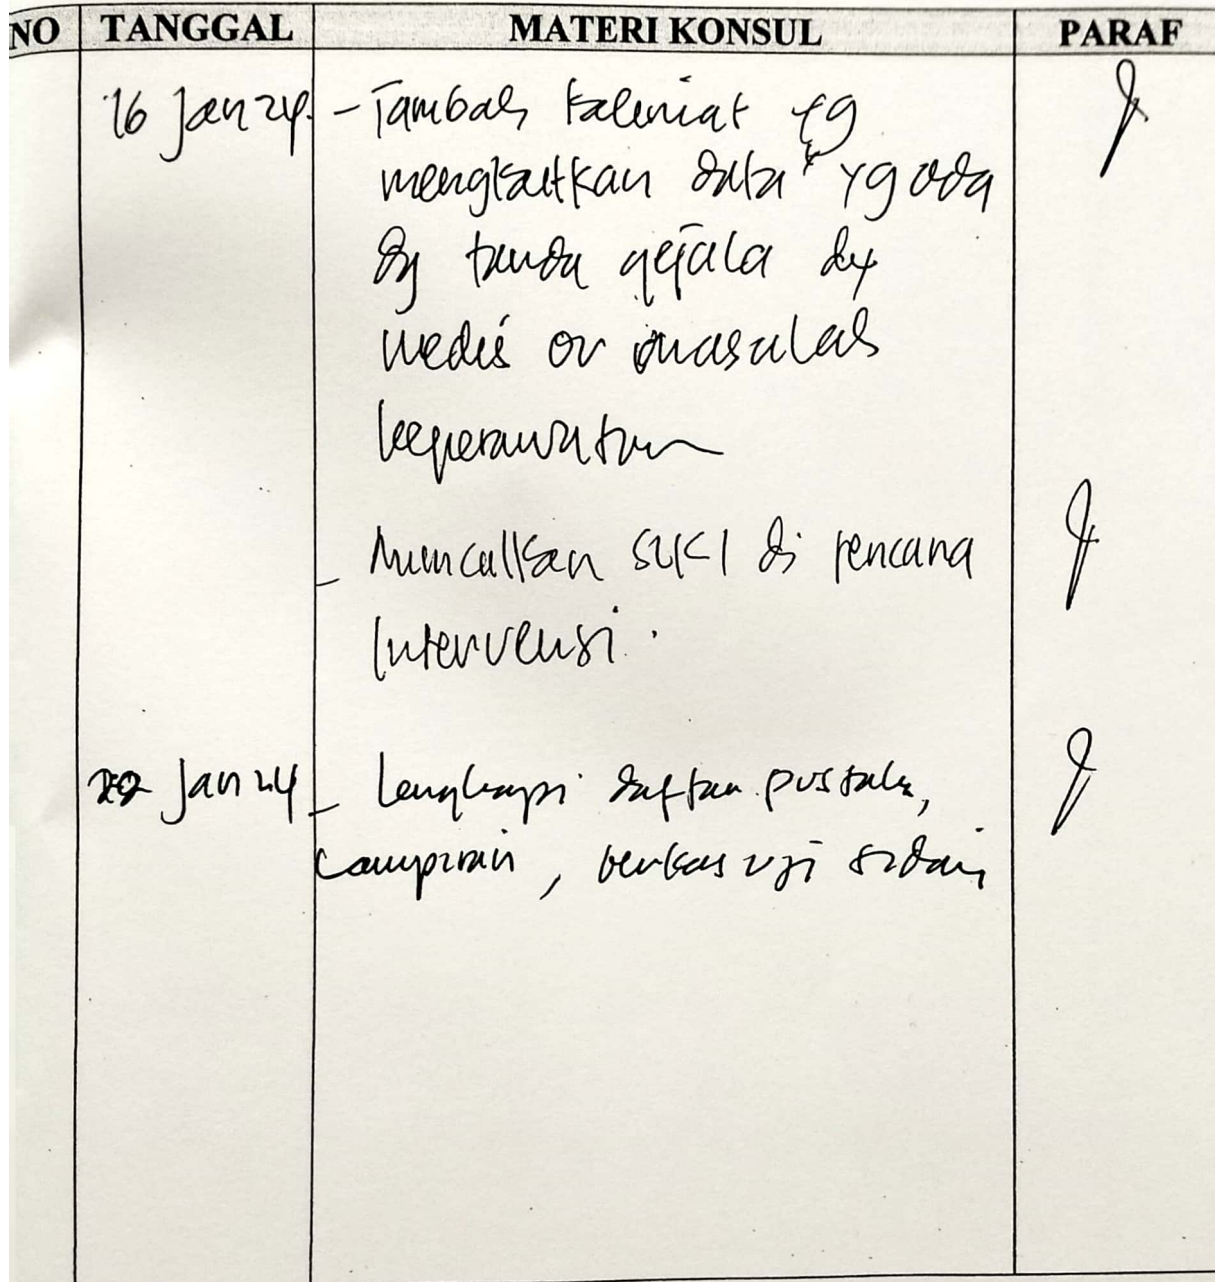 NO TANGGAL MATERI KONSUL PARAF
16 Jan 24. - Tambah kalimat yg
mengkaitkan data² yg ada
dg tanda gejala dx
medis or masalah
keperawatan
- Munculkan SIKI di rencana
Intervensi.
Jan 24 - Lengkapi daftar pustaka,
Lampiran, berkas uji sidang